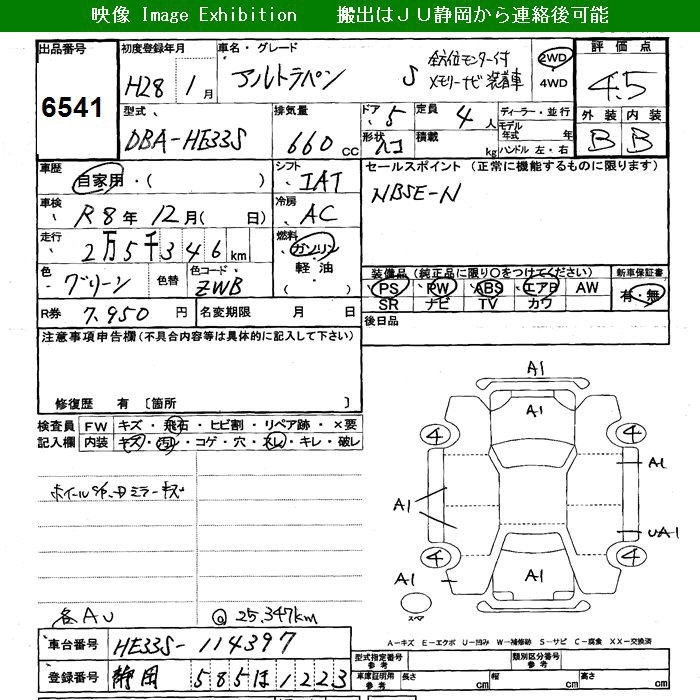 映像 Image Exhibition 搬出はJU静岡から連絡後可能
出品番号 初度登録年月 車名・グレード 評価点
6541 H28 1月 アルトラパン S 全方位モニター付 メモリーナビ装着車 2WD 4WD 4.5
型式 排気量 ドア 定員 ディーラー・並行 外装 内装
DBA-HE33S 660 CC 5 4人 モデル年式 年 B B
形状 積載 kg ハンドル 左・右
車歴 自家用・( ) シフト IAT セールスポイント (正常に機能するものに限ります)
車検 R8年12月( 日) 冷房 AC
走行 2万5千346km 燃料 ガソリン 軽油・ ( )
色 グリーン 色替 色コード ZWB
装備品 (純正品に限り○をつけてください) 新車保証書
PS PW ABS エアB AW 有・無
SR ナビ TV カワ
R券 7,950円 名変期限 月 日 後日品
注意事項申告欄(不具合内容等は具体的に記入して下さい)
修復歴 有 〔箇所 〕
検査員記入欄 FW キズ・飛石・ヒビ割・リペア跡・×要
内装 キズ・汚レ・コゲ・穴・スレ・キレ・破レ
A1
A1
4 4
A1
A1
UA1
4 4
A1
A1
スペア
各AU @25,347km
A-キズ E-エクボ U-凹み W-補修跡 S-サビ C-腐食 XX-交換済
車台番号 HE33S-114397
型式指定番号 参考 類別区分番号 参考
登録番号 静岡 585 ほ 1223
車庫証明用 参考 長さ cm 幅 cm 高さ cm